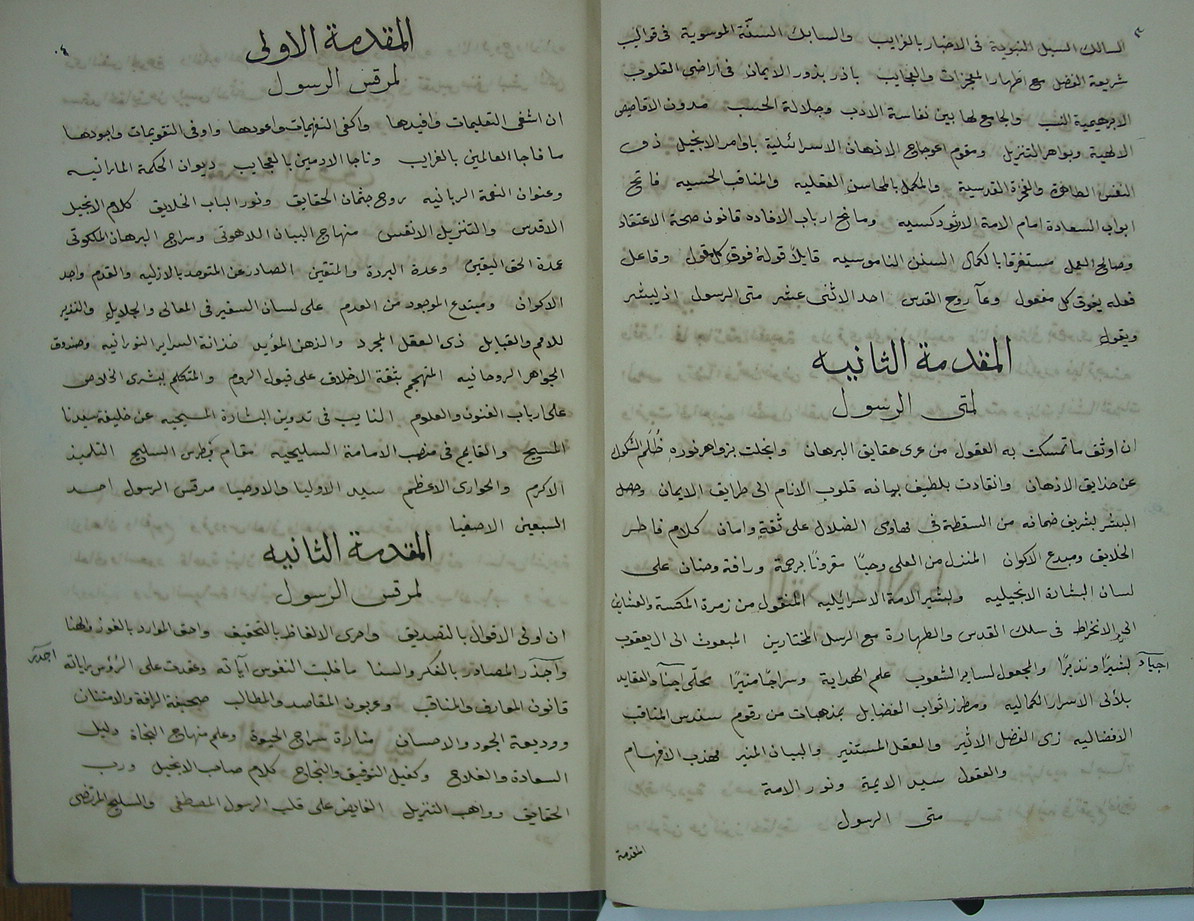 السالك السبل النبوية فى الاخبار بالغرايب والسابك السنّة الموسوية فى قوالب
شريعة الفضل مع اظهار المعجزات والعجايب باذر بذور الايمان فى اراضى القلوب
الابرهيمية النسب والجامع لها بين نفاسة الادب وجلالة الحسب مدون الاقاصيص
الالهية وبواهر التنزيل ومقوم اعوجاج الاذهان الاسرائلية باوامر الانجيل ذى
النفس الطاهرة والقدسية والمكمل بالمحاسن العقليه والمناقب الحسيه فاتح
ابواب السعادة امام الامة الارثودكسيه ومانح ارباب الافاده قانون صحة الاعتقاد
وصالح العمل مستغرقا بالكمال السنن الناموسيه قايلاً قولهُ فوق كل مقول وفاعل
فعله يفوق كل مفعول وعآ روح القدس احد الاثنى عشر متى الرسول اذ يبشر
ويقول
المقدمة الثانيه
لمتى الرسول
ان اوثق ما تمسكت به العقول من عرى حقايق البرهان وانجلت بزواهر نوره ظُلَم الشكوك
عن حدايق الاذهان وانقادت بلطيف بيانه قلوب الانام الى طرايق الايمان وحصل
البشر بشريف ضمانه من السقطة فى مهاوى الضلال على ثقةٍ وامان كلام فاطر
الخلايق ومبدع الاكوان المنزل من العلى وحيًا مقرونًا برحمة ورافة وحنان على
لسان البشان الانجيليه وبشير الامة الاسرايليه المنقول من زمرة المكسة والعشارين
الى الانخراط فى سلك القدس والطهارة مع الرسل المختارين المبعوث الى ال يعقوب
بشيرًا ونذيرًا والمجعول لساير الشعوب علم الهداية وسراجًا منيرًا محلّى اجياد العقايد
اجياد
بلآلى الاسرار الكماليه ومطرز اثواب الفضايل بمذهبات من رقوم سندس المناقب
الافضاليه ذى الفضل الاثير والعقل المستنير والبيان المنير مهذب الافهام
والعقول سيد الايمة ونور الامة
متى الرسول
المقدمة
٤
المقدمة الاولى
لمرقس الرسول
ان اشفى التعليمات وافيدها واكفى التفهيمات واعودها واوفى التقويمات واجودها
ما فاجا العالمين بالغرايب وناجا الادمين بالعجايب ديوان الحكمة المارانيه
وعنوان النعمة الربانيه روح جثمان الحقايق ونور الباب الخلايق كلام الانجيل
الاقدس والتنزيل الانفس منهاج البيان اللاهوتى وسراج البرهان الملكوتى
عمدة الحق اليقين وعدة البررة والمتقين الصادر عن المتوحد بالازليه والقدم واجد
الاكوان ومبتدع الموجود من العدم على لسان السفير فى المعالى والجلايل والنذير
للامم والقبايل ذى العقل المجرد والذهن المؤيد خزانة السراير النورانيه وصندوق
الجواهر الروحانيه المتهجم بثقة الاخلاق على قبول الروم والمتكلم ببشرى الخلاص
على ارباب الفنون والعلوم النايب فى تدوين البشارة المسيحيه عن خليفة سيدنا
المسيح والقايم فى منصب الامامة السليحيه مقام بُطرس السليح التلميذ
الاكرم والحوارى الاعظم سيد الاوليا والاوصيا مرقس الرسول احد
السبعين الاصفيا
المقدمة الثانيه
لمرقس الرسول
ان اولى الاقوال بالتصديق واحرى الالفاظ بالتحقيق واحق الموارد بالفوز والهنا
واجدر المصادر بالفكر والسنا ما خلبت النفوس آياته وعقدت على الرؤس راياته
اجدر
قانون المعارف والمناقب وعربون المقاصد والمطالب صحيفة الرافة والامتنان
ووديعة الجود والاحسان منارة سراج الحيوة وعلم منهاج النجاة ودليل
السعادة والفلاح وكفيل التوفيق والنجاح كلام صاحب الانجيل ورب
الحقايق وواهب التنزيل الفايض على قلب الرسول المصطفى والسليح المرتضى